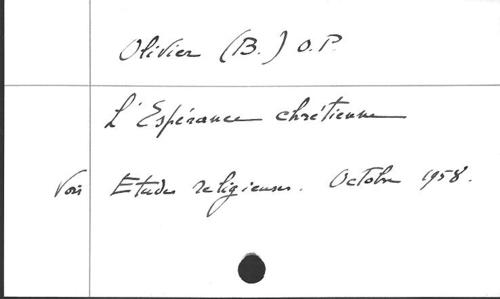 Olivier (B.) O.P.
L'Espérance chrétienne
Voir Etudes religieuses. Octobre 1958.